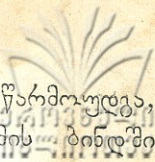 წარმოუდგა,
მის ბინდში